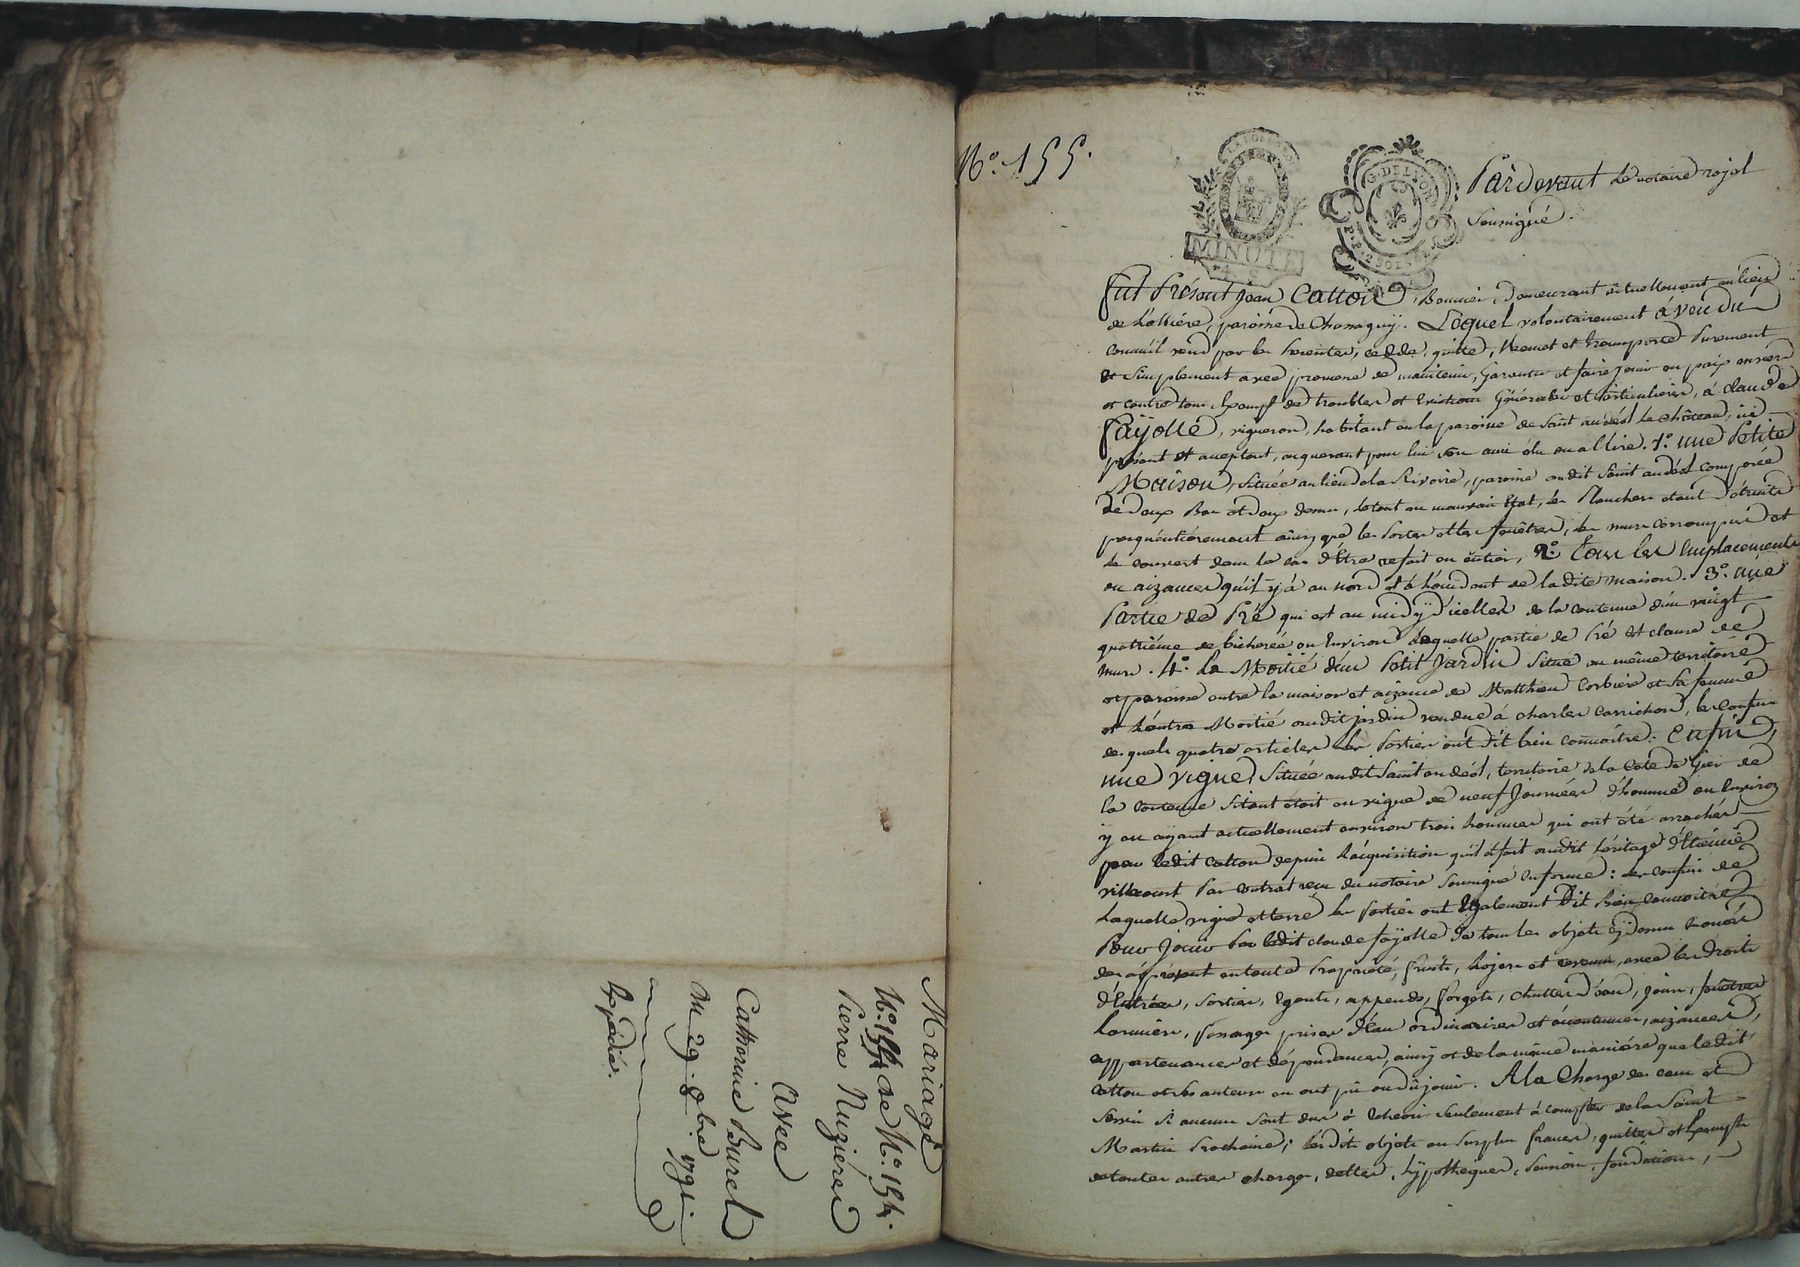 Mariage
N.° 155 de N.° 154.
Pierre Nuzière
avec
Catherine Burel
Du 29. 8bre 1791
Expédié.
N.° 155.
MINUTE
4 S
G. DE LYON
Pardevant le notaire royal
soussigné.
Fut Présent Jean Catton, Bouvier, demeurant actuellement au lieu
de Lollière, paroisse de Chassagny. Lequel volontairement a vendu
comme il vend par les présentes, cedde, quitte, Remet et transporte purement
et simplement avec promesse de maintenir, Garantir et faire jouir en paix envers
et contre tous, Exempt de troubles et Evictions Générales et particulières, à claude
fayolle, vigneron, habitant en la paroisse de saint andéol le château, ici
présent et acceptant, acquerant pour lui son ami élu ou a l'Elire. 1.° une Petite
Maison, située au lieu de la Rivoire, paroisse dudit saint andéol composée
de deux Bas et deux dessus, le tout en mauvais Etat, les Planchers étant détruits
ainsy que les Portes et les fenêtres, les murs corrompus et
le couvert dans le cas d'être refait en entier, 2.° Tous les Emplacements
ou aizances qu'il y a au nord et à l'occident de la dite maison. 3.° une
Partie de Pré qui est au midy d'icelles de la contenue d'un vingt
quatrième de bicherée ou Environ laquelle partie de Pré est clause de
murs. 4.° La Moitié d'un Petit Jardin situé au même territoire
et paroisse entre la maison et aizance de Matthieu Corbière et sa femme
et l'autre Moitié dudit jardin vendue à charles Carrichon, les confins
desquels quatre articles les Parties ont dit bien connaître. Enfin,
une vigne située audit saint andéol, territoire de la Cote de Gier de
la contenue si tout étoit en vigne de neuf journées d'hommes ou Environ
y en ayant actuellement environ trois hommes qui ont été arrachés
par ledit Catton depuis l'acquisition qu'il a fait dudit héritage d'Etienne
Villecourt Par contrat reçu du notaire soussigné en forme: les confins de
laquelle vigne et terre les Parties ont Egalement Dit Bien connoitre
Pour Jouir Par ledit claude fayolle de tous les objets cy dessus
dès à présent en toute Propriété, fruits, loyers et revenus, avec les droits
d'Entrées, sorties, Egouts, appends, forgets, chuttes d'eau, jours, fenêtres
lumières, passages prises d'Eau ordinaires et accoutumés, aizances,
appartenances et dépendances, ainsy et de la même manière que ledit
Catton et ses auteurs en ont pû ou dû jouir. A la Charge des cens et
servis si aucuns sont dus à Echeoir seulement à compter de la saint
Martin Prochaine; lesdits objets au surplus francs, quittes et Exempts
de toutes autres charges, dettes, hypothèques, pensions, fondations,